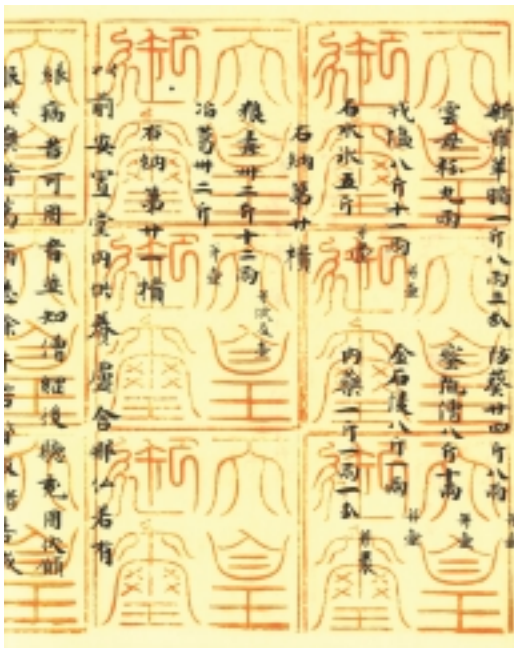 新羅羊脂一斤八兩 防葵廿四斤八兩 并壺
雲母粉九兩 蜜陀僧八斤十兩 并壺
戎塩八斤十一兩 并壺 金石陵八斤一兩 并壺
石水氷五斤 并壺 内藥一斤一兩一分 并裹
右納第廿櫃
狼毒卌二斤十二兩 并沙及壺
冶葛卅二斤 并壺
右納第廿一櫃
以前安置堂内供養盧舍那仏若有
緣病苦可用者並知僧綱後聽充用伏願
天皇御璽